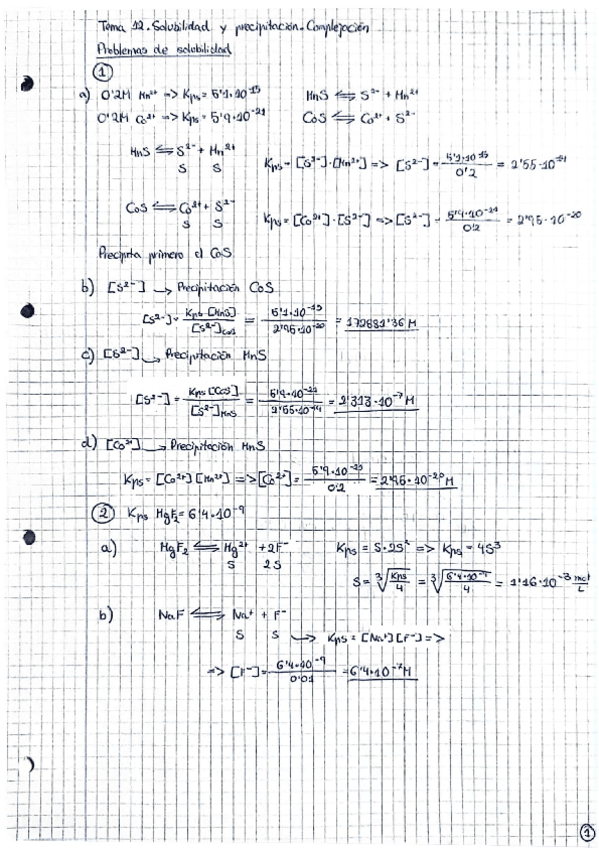 Tema 12. Solubilidad y precipitación. Complejación
Problemas de solubilidad
1
a) 0'2M Mn²⁺ => Kps = 5'1·10⁻¹⁵ MnS ⇌ S²⁻ + Mn²⁺
0'2M Co²⁺ => Kps = 5'9·10⁻²¹ CoS ⇌ Co²⁺ + S²⁻
MnS ⇌ S²⁻ + Mn²⁺ Kps = [S²⁻]·[Mn²⁺] => [S²⁻] = 5'1·10⁻¹⁵ / 0'2 = 2'55·10⁻¹⁴
S S
CoS ⇌ Co²⁺ + S²⁻ Kps = [Co²⁺]·[S²⁻] => [S²⁻] = 5'9·10⁻²¹ / 0'2 = 2'95·10⁻²⁰
S S
Precipita primero el CoS
b) [S²⁻] → Precipitación CoS
[S²⁻] = Kps [MnS] / [S²⁻]CoS = 5'1·10⁻¹⁵ / 2'95·10⁻²⁰ = 172881'36 M
c) [S²⁻] → Precipitación MnS
[S²⁻] = Kps [CoS] / [S²⁻]MnS = 5'9·10⁻²¹ / 2'55·10⁻¹⁴ = 2'313·10⁻⁷ M
d) [Co²⁺] → Precipitación MnS
Kps = [Co²⁺][Mn²⁺] => [Co²⁺] = / 0'2 = 2'95·10⁻²⁰ M
2 Kps HgF₂ = 6'4·10⁻⁹
a) HgF₂ ⇌ Hg²⁺ + 2F⁻ Kps = S·2S² => Kps = 4S³
S 2S
S = ∛(Kps / 4) = ∛(6'4·10⁻⁹ / 4) = 1'16·10⁻³ mol/L
b) NaF ⇌ Na⁺ + F⁻
S S → Kps = [Na⁺][F⁻] =>
=> [F⁻] = 6'4·10⁻⁹ / 0'01 = 6'4·10⁻⁷ M
1